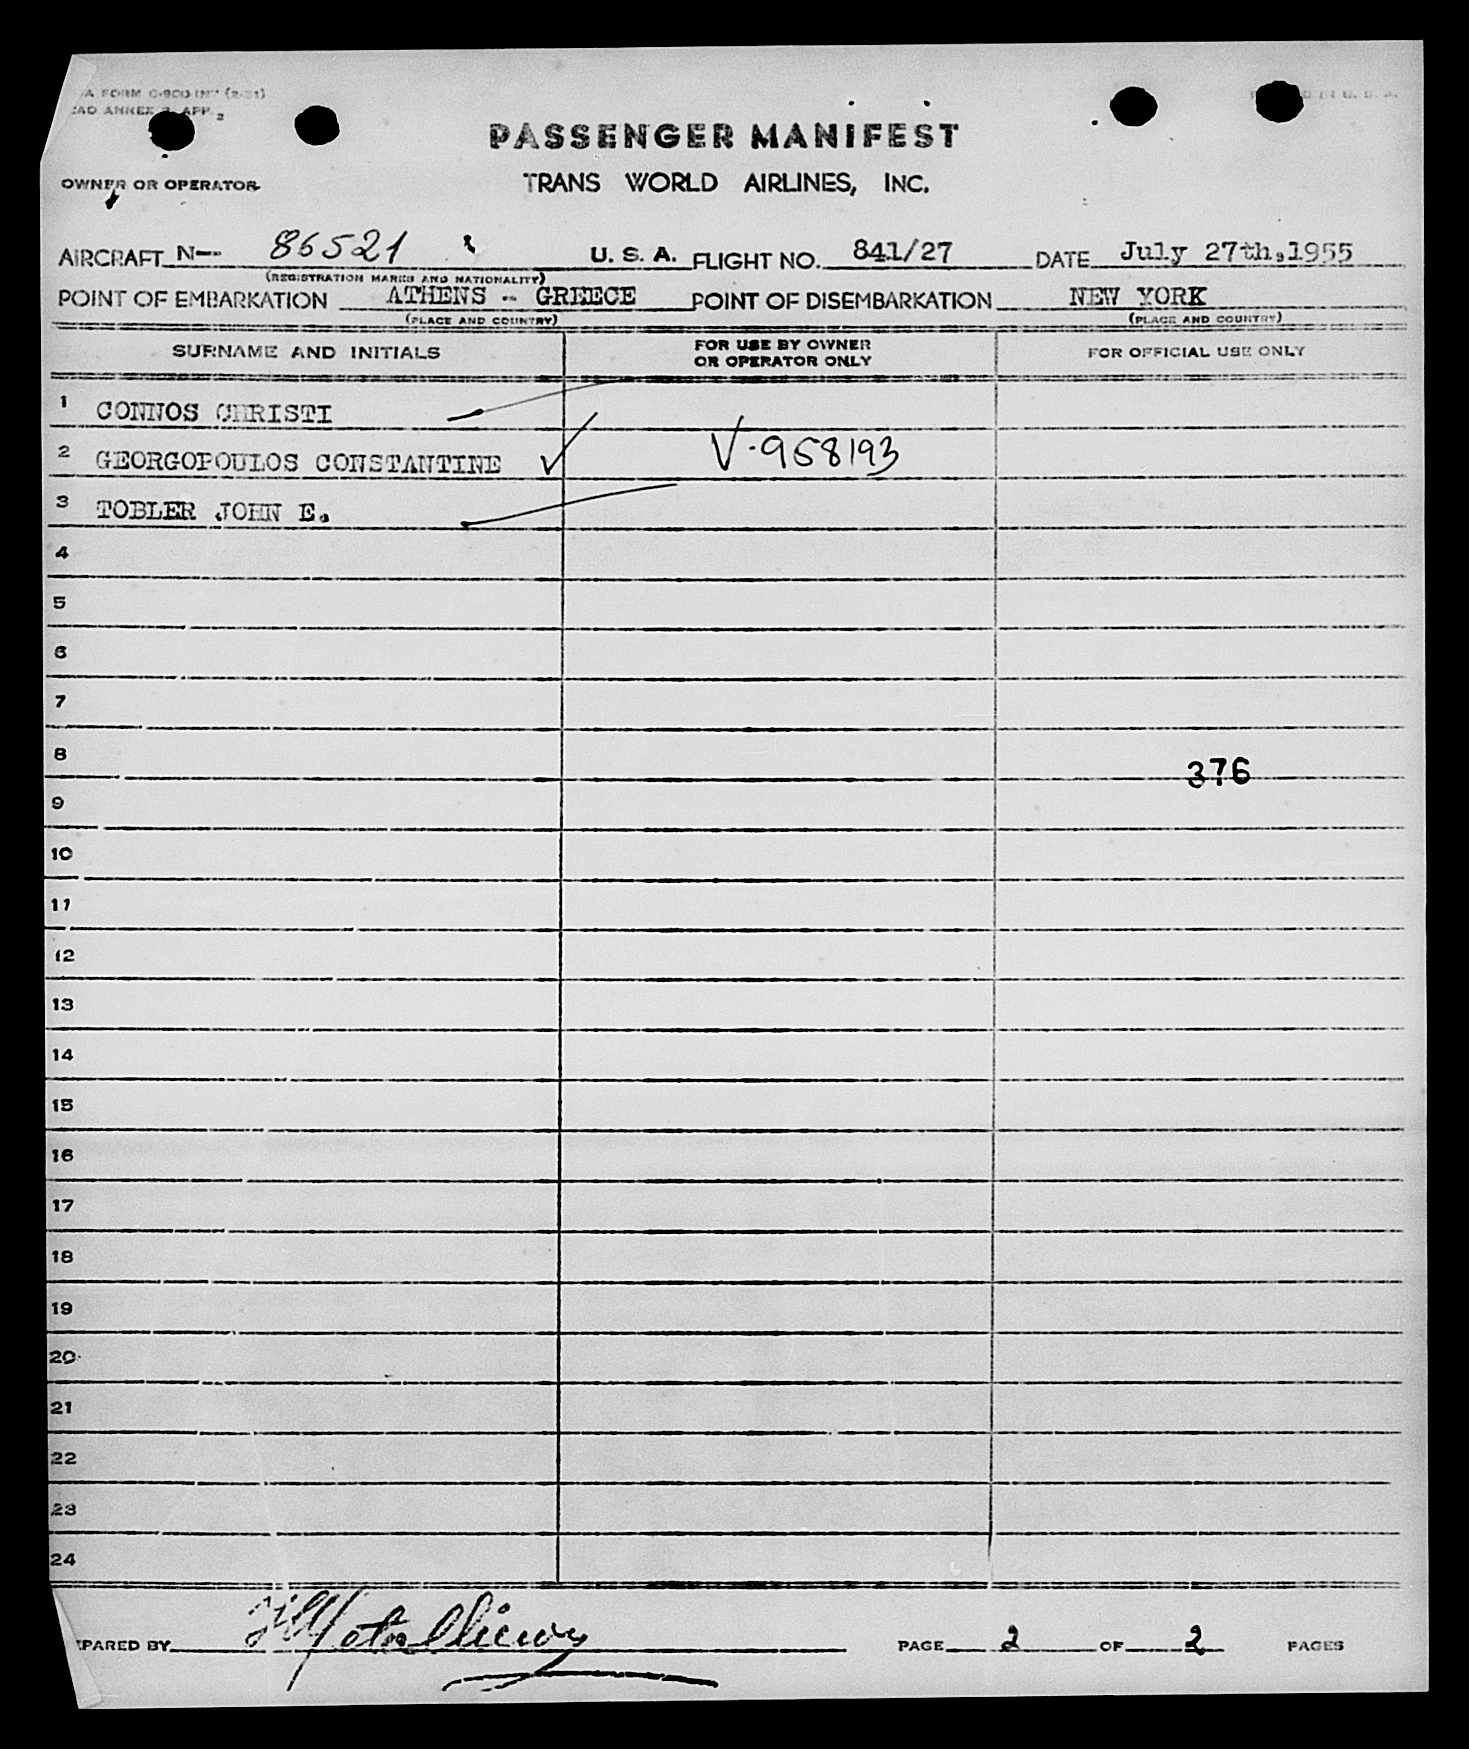 FORM
PASSENGER MANIFEST
OWNER OR OPERATOR TRANS WORLD AIRLINES, INC.
AIRCRAFT N-- 86521 U. S. A. FLIGHT NO. 841/27 DATE July 27th,1955
(REGISTRATION MARKS AND NATIONALITY)
POINT OF EMBARKATION ATHENS - GREECE POINT OF DISEMBARKATION NEW YORK
(PLACE AND COUNTRY) (PLACE AND COUNTRY)
SURNAME AND INITIALS FOR USE BY OWNER OR OPERATOR ONLY FOR OFFICIAL USE ONLY
1 CONNOS CHRISTI
2 GEORGOPOULOS CONSTANTINE ✓ V-958193
3 TOBLER JOHN E.
4
5
6
7
8
376
9
10
11
12
13
14
15
16
17
18
19
20
21
22
23
24
PARED BY PAGE 2 OF 2 PAGES